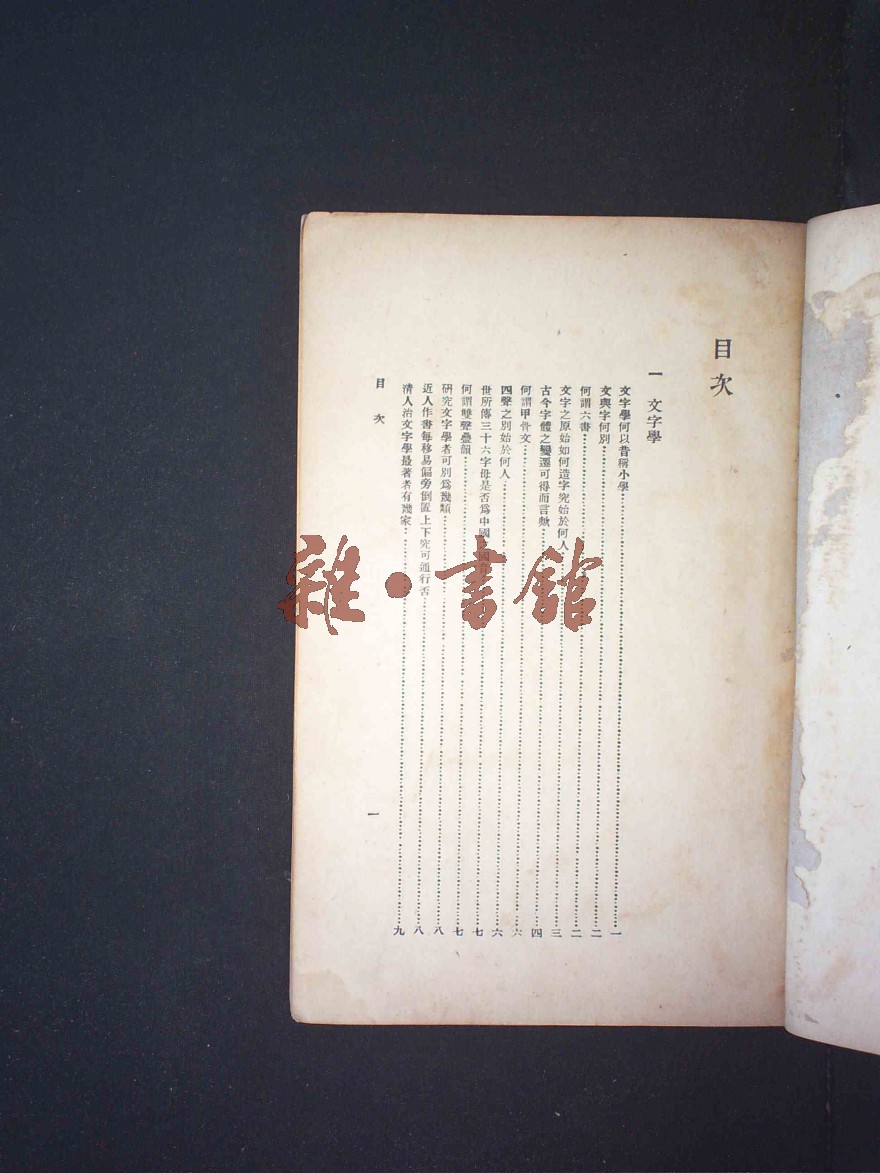 目次
一 文字學
文字學何以昔稱小學……一
文與字何別……二
何謂六書……二
文字之原始如何造字究始於何人……三
古今字體之變遷可得而言歟……四
何謂甲骨文……六
四聲之別始於何人……六
世所傳三十六字母是否爲中國……七
何謂雙聲疊韻……七
研究文字學者可別爲幾類……八
近人作書每移易偏旁倒置上下究可通行否……八
清人治文字學最著者有幾家……九
目次
一
雜·書館